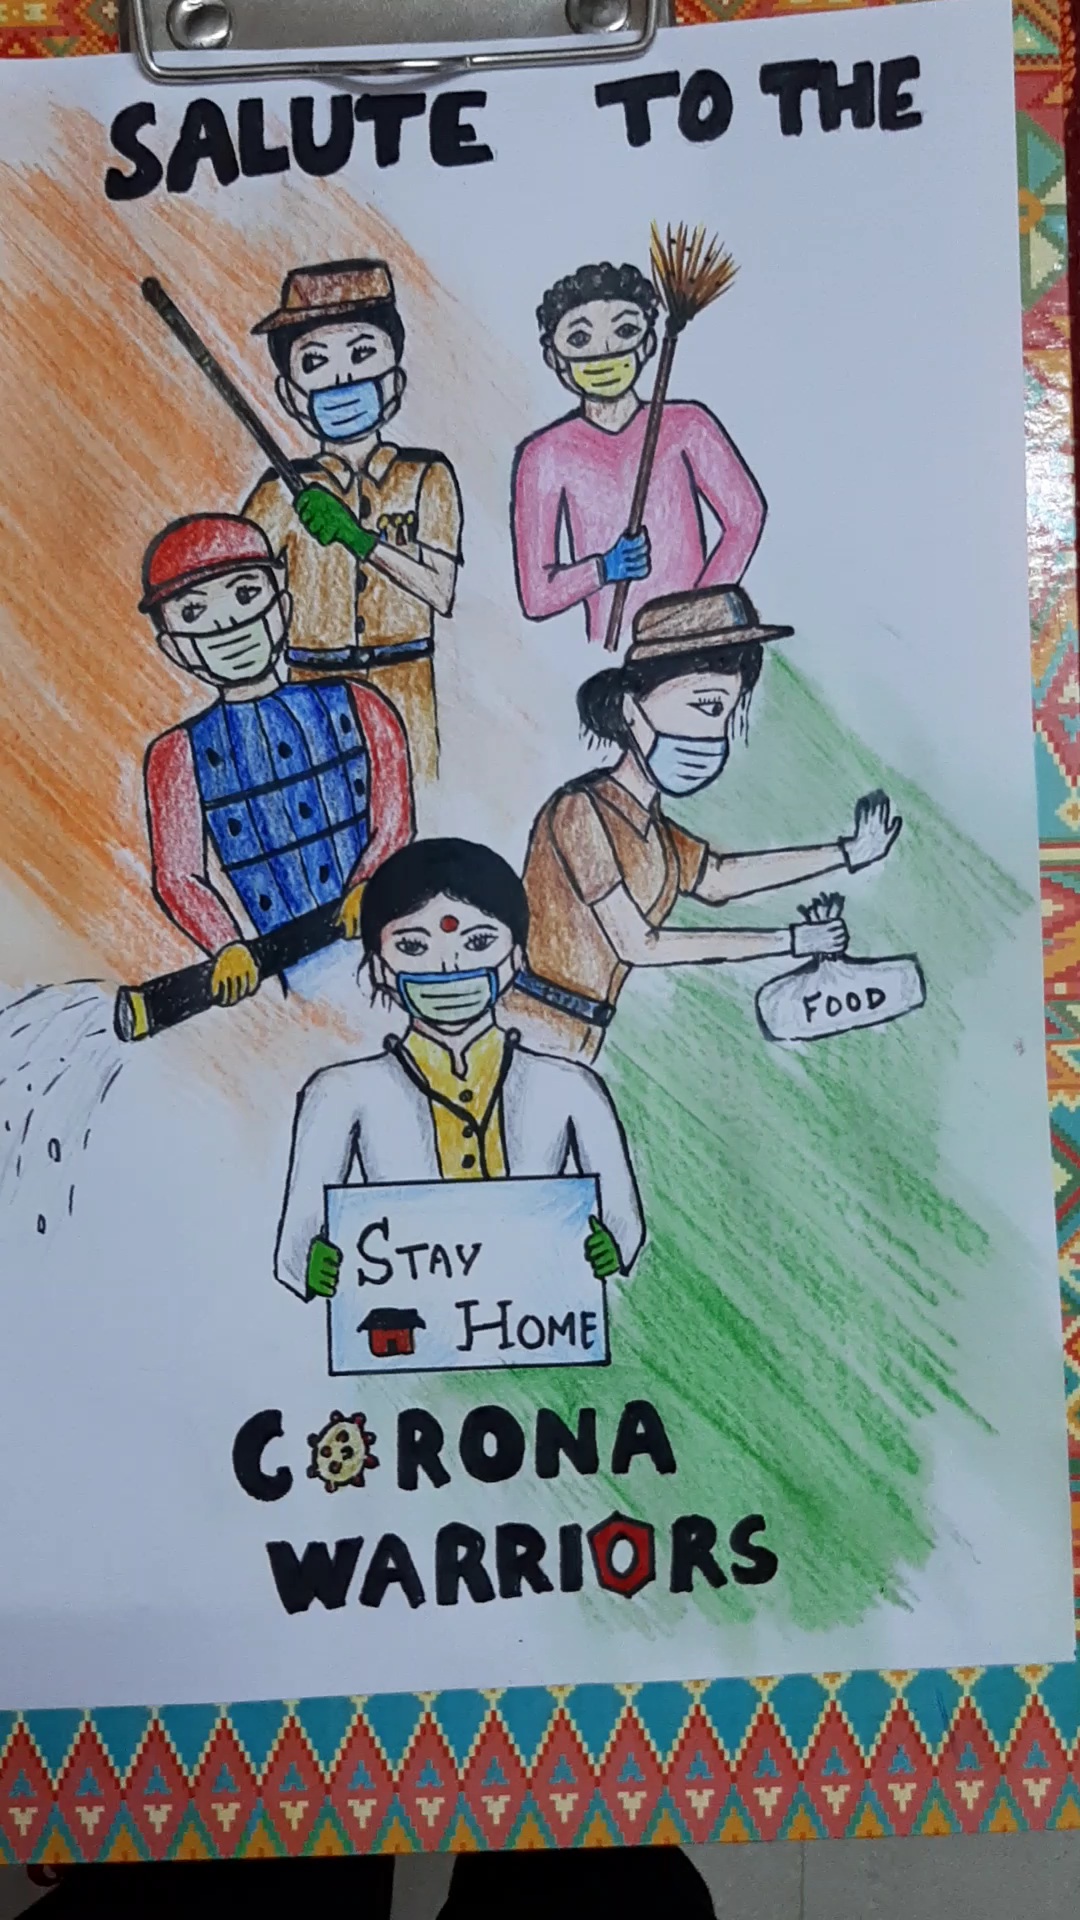 SALUTE TO THE
FOOD
STAY
HOME
CORONA
WARRIORS